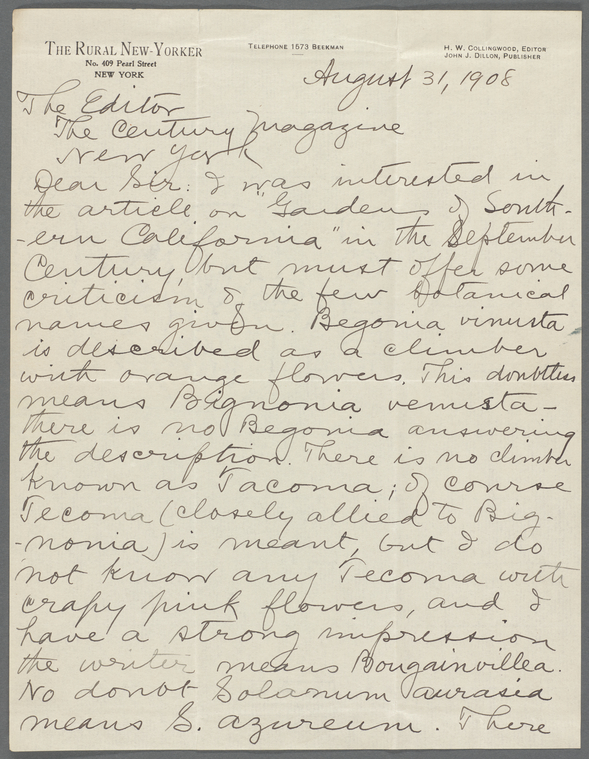 THE RURAL NEW-YORKER
No. 409 Pearl Street
NEW YORK
TELEPHONE 1573 BEEKMAN
H. W. COLLINGWOOD, EDITOR
JOHN J. DILLON, PUBLISHER
August 31, 1908
The Editor
The Century Magazine
New York
Dear Sir: I was interested in
the article on "Gardens of South-
-ern California" in the September
Century, but must offer some
criticism of the few botanical
names given. Begonia vinusta
is described as a climber
with orange flowers. This doubtless
means Bignonia venusta -
there is no Begonia answering
the description. There is no climber
known as Tacoma; of course
Tecoma (closely allied to Big-
-nonia) is meant, but I do
not know any Tecoma with
crapy pink flowers, and I
have a strong impression
the writer means Bougainvillea.
No doubt Solanum aurasia
means S. azureum. There